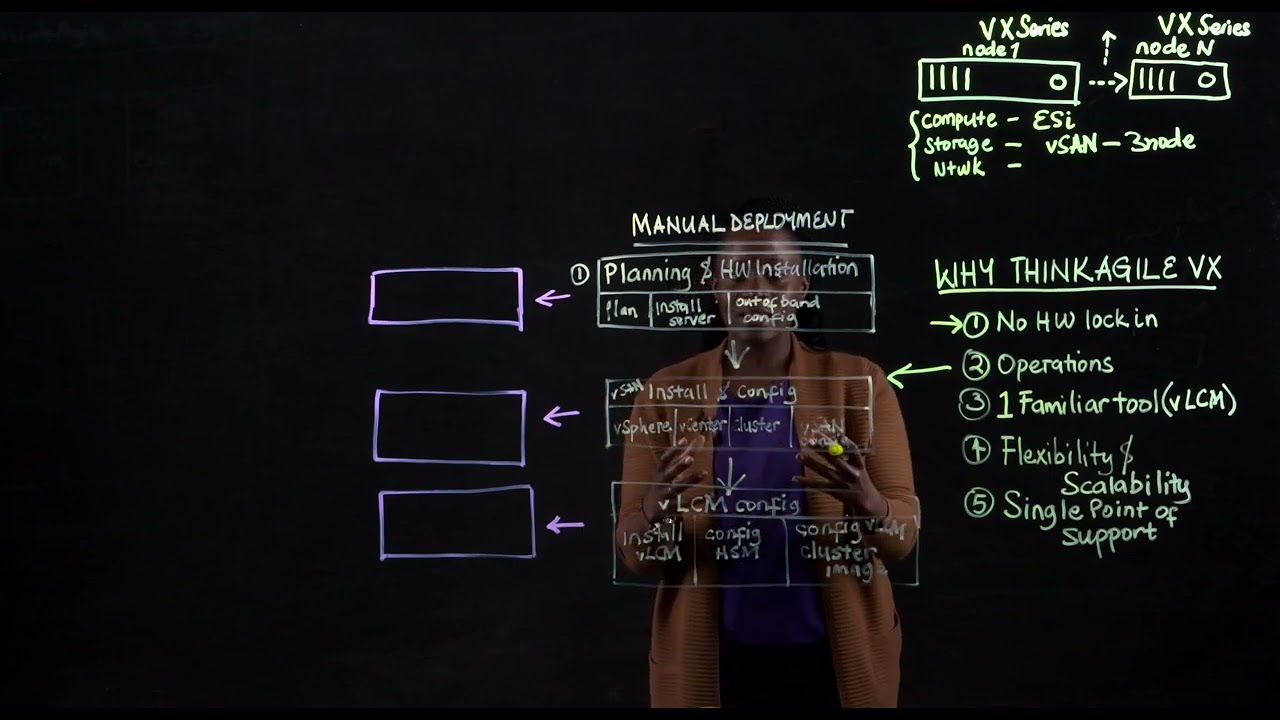 VX Series
node 1
VX Series
node N
compute - ESi
storage - vSAN - 3node
Ntwk -
MANUAL DEPLOYMENT
① Planning & HW Installation
Plan
install server
out of band config
vSAN Install & Config
vSphere
vCenter
cluster
vSAN config
vLCM config
install vLCM
config HSM
config vLCM cluster image
WHY THINKAGILE VX
① No HW lock in
② Operations
③ 1 Familiar tool (vLCM)
④ Flexibility &
Scalability
⑤ Single Point of
support